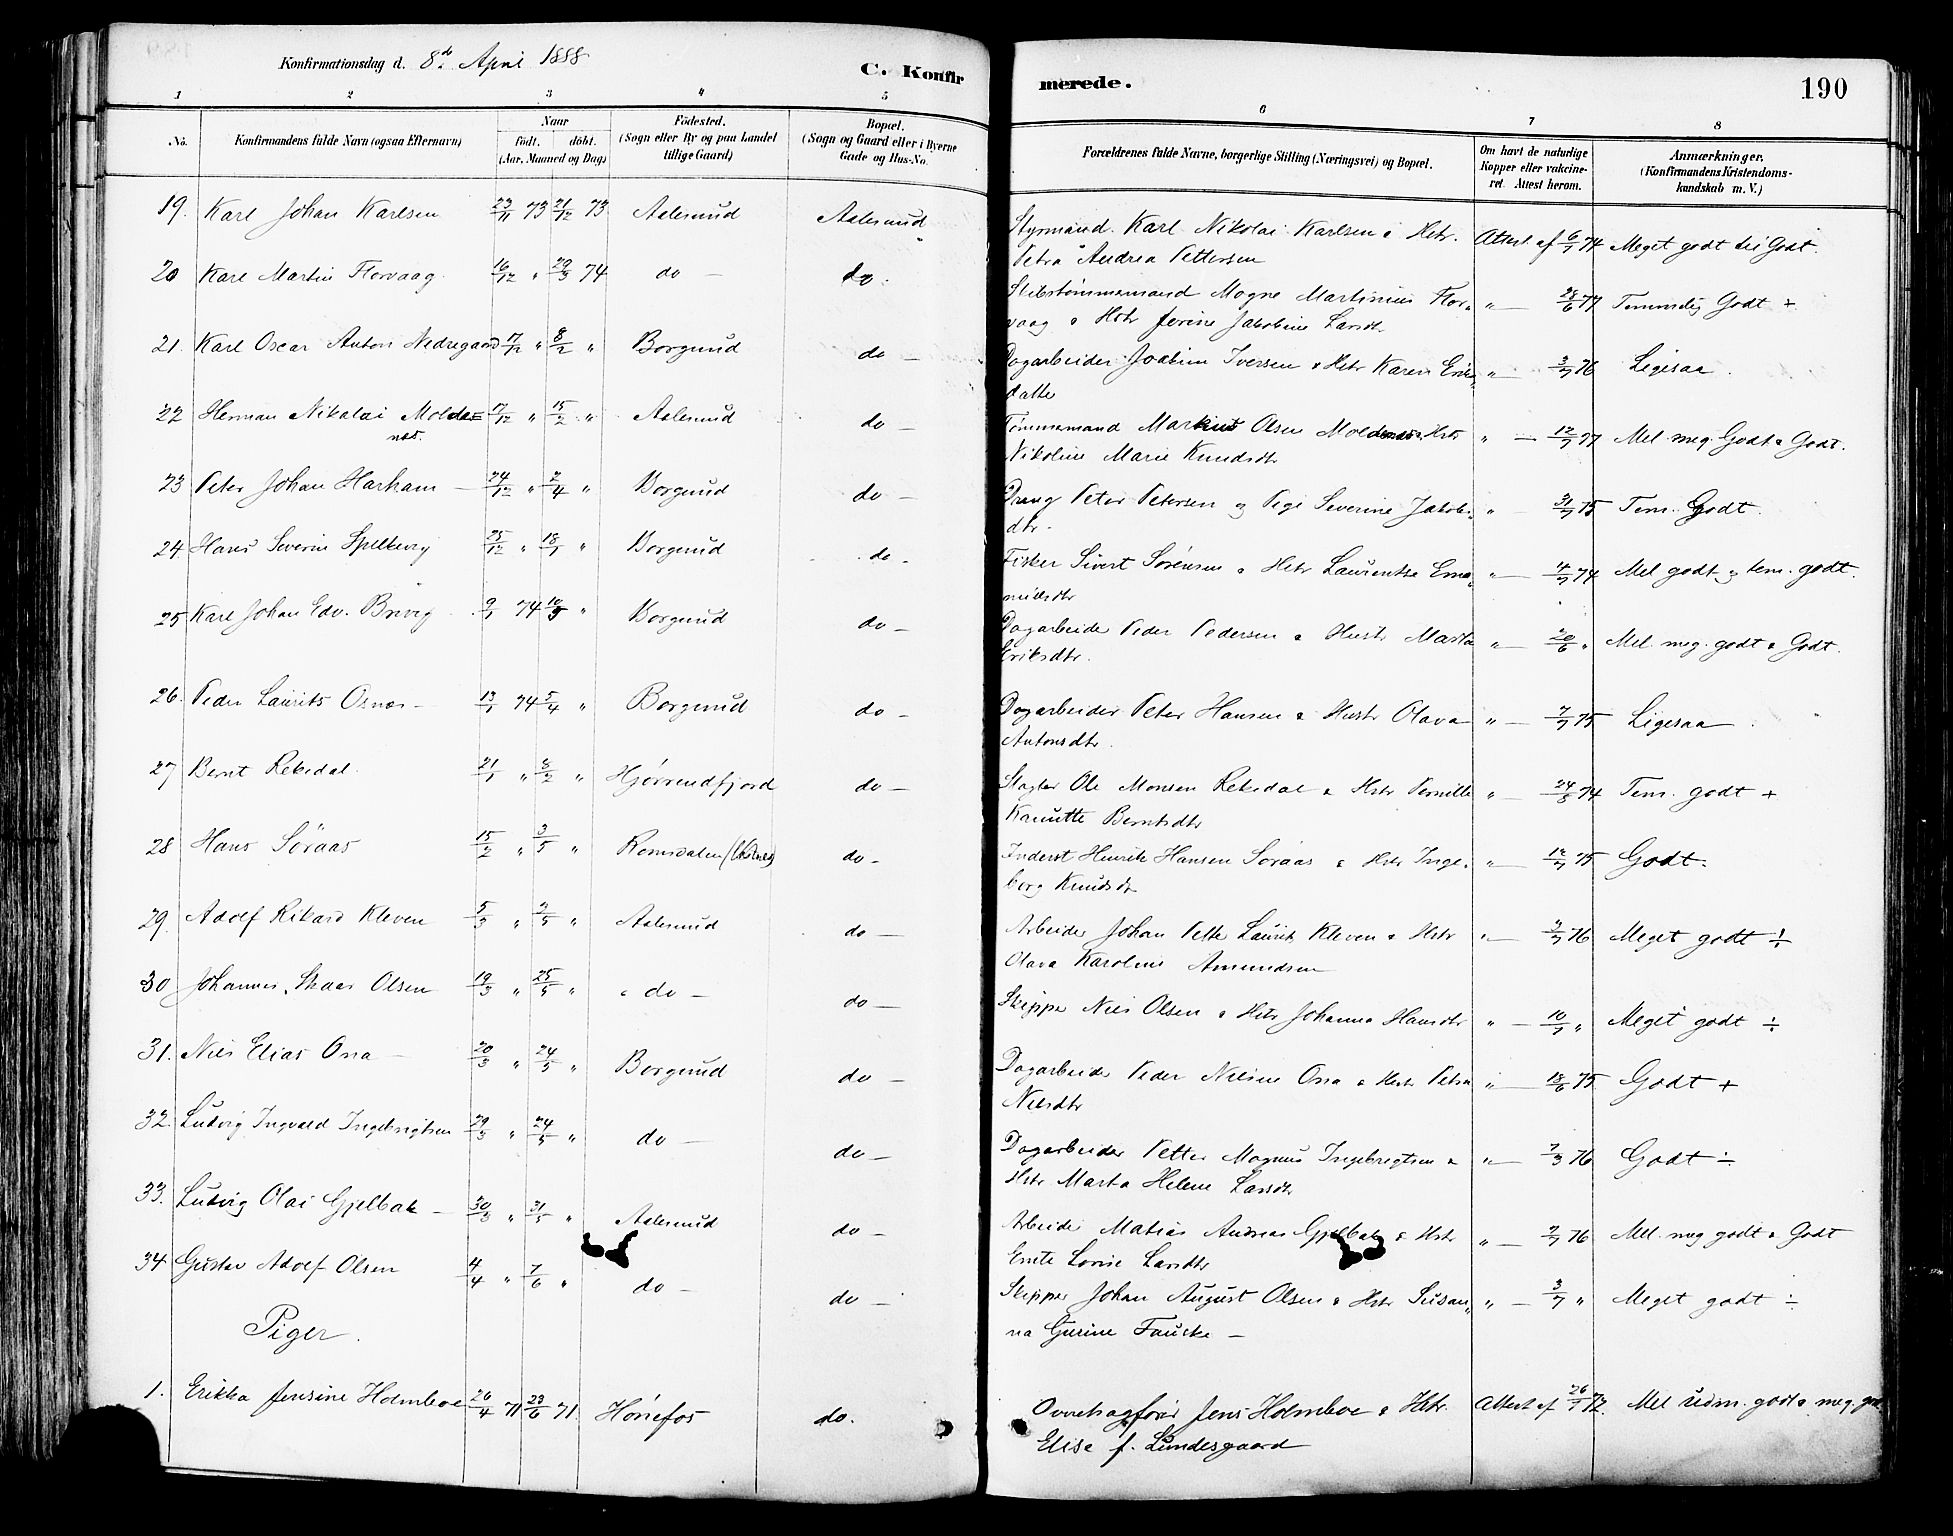 Konfirmationsdag d. 8de April 1888
C. Konfirmerede.
190
1 2 3 4 5 6 7 8
No. Konfirmandens fulde Navn (ogsaa Efternavn) Naar födt. döbt. (Aar, Maaned og Dag) Födested. (Sogn eller By og paa Landet tillige Gaard) Bopæl. (Sogn og Gaard eller i Byerne Gade og Hus-No. Forældrenes fulde Navne, borgerlige Stilling (Næringsvei) og Bopæl. Om havt de naturlige Kopper eller vakcineret. Attest herom. Anmærkninger. (Konfirmandens Kristendomskundskab m. V.)
19. Karl Johan Karlsen 23/11 73 21/12 73 Aalesund Aalesund Styrmand Karl Nikolai Karlsen & Hstr. Attest af 6/7 74 Meget godt til Godt.
Petra Andrea Pettersen
20 Karl Martin Florvaag 16/12 " 29/3 74 do — do. Skibstømmermand Mogne Martinius Flor- " — 28/6 77 Temmelig Godt +
vaag & Hstr Jorine Jakobine Larsdtr
21. Karl Oscar Anton Nedregaard 17/12 " 8/2 " Borgund do — Dagarbeider Joakim Iversen & Hstr Karen Eriks- " — 3/7 76 Ligesaa
datter
22 Herman Nikolai Molde= 17/12 " 15/2 " Aalesund do — Tømmermand Markus Olsen Moldenæs & Hstr " — 12/7 77 Mel. meg. Godt & Godt.
næs. Nikoline Marie Knudsdtr
23 Peter Johan Harham — 24/12 " 2/4 " Borgund do — Dreng Peter Petersen og Pige Severine Jakobs- " 31/7 75 Tem. Godt.
dtr.
24. Hans Severin Spilkevig 25/12 " 18/1 " Borgund do - Fisker Sivert Sørensen & Hstr Laurentse Ema- " — 4/7 74 Mel godt og tem. godt.
nuelsdtr
25 Karl Johan Edv. Brevig 9/1 74 10/5 " Borgund do — Dagarbeider Peder Pedersen & Hustr Marta " — 20/6 " Mel. meg. godt & Godt.
Eriksdtr.
26. Peder Laurits Osnes — 13/1 74 5/4 " Borgund do — Dagarbeider Peter Hansen & Hustr Olava " — 7/7 75 Ligesaa
Antonsdtr.
27 Bernt Rekedal. 21/1 " 8/2 " Hjørrendfjord do — Slagter Ole Monsen Rekedal & Hstr Pernille " — 24/8 74 Tem. godt +
Kanutte Berntsdtr
28 Hans Søraas 15/2 " 3/5 " Romsdalen do - Inderst Henrik Hansen Søraas & Hstr Inge- " — 12/7 75 Godt.
borg Knudsdtr
29. Adolf Rikard Kleven 5/3 " 2/5 " Aalesund do — Arbeider Johan Petter Laurits Kleven & Hstr " — 2/7 76 Meget godt ÷
Olava Karoline Amundsen
30 Johannes Skaar Olsen 19/3 " 25/5 " do — do — Skipper Nils Olsen & Hstr Johanna Hansdtr " — 10/7 " Meget godt ÷
31. Nils Elias Ona — 20/3 " 24/5 " Borgund do — Dagarbeider Peder Nilsen Ona & Hstr Petra " — 18/6 75 Godt +
Nilsdtr
32. Ludvig Ingvald Ingebrigtsen 29/3 " 24/5 " do — do — Dagarbeider Petter Magnus Ingebrigtsen & " — 7/3 76 Godt ÷
Hstr Marta Helene Larsdtr
33. Ludvig Olai Gjelbak — 30/3 " 31/5 " Aalesund do — Arbeider Matias Andreas Gjelbak & Hstr " — 2/7 76 Mel. meg godt & Godt
Enete Lovise Larsdtr
34 Gustav Adolf Olsen 4/4 " 7/6 " do — do — Skipper Johan August Olsen & Hstr Susan- " — 3/7 " Meget godt ÷
na Gurine Faucke —
Piger.
1. Erikka Jensine Holmboe 26/4 71 23/6 71. Hønefos do. Overtoldfører Jens Holmboe & Hstr. Attest af 26/7 72. Mel udm. godt & meg. godt
Elise f. Lundesgaard